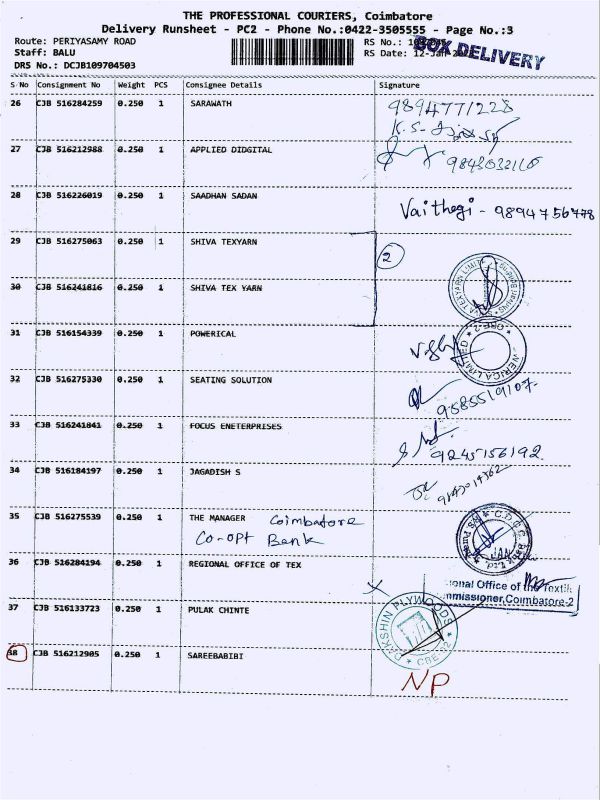 THE PROFESSIONAL COURIERS, Coimbatore
Delivery Runsheet - PC2 - Phone No.:0422-3505555 - Page No.:3
Route: PERIYASAMY ROAD
RS No.:
BOX DELIVERY
Staff: BALU
RS Date: 12-Jan
DRS No.: DCJB109704503
S No Consignment No Weight PCS Consignee Details Signature
26 CJB 516284259 0.250 1 SARAWATH 9894771228
K.S.
27 CJB 516212988 0.250 1 APPLIED DIDGITAL 9843032110
28 CJB 516226019 0.250 1 SAADHAN SADAN Vaithegi - 9894756778
29 CJB 516275063 0.250 1 SHIVA TEXYARN 2
30 CJB 516241816 0.250 1 SHIVA TEX YARN
TEXYARN LIMITED
31 CJB 516154339 0.250 1 POWERICAL
WERICA LIMITED CBE-2
32 CJB 516275330 0.250 1 SEATING SOLUTION 9585519107.
33 CJB 516241841 0.250 1 FOCUS ENETERPRISES 9245156192
34 CJB 516184197 0.250 1 JAGADISH S
35 CJB 516275539 0.250 1 THE MANAGER Coimbatore
Co-opt Bank
C.D.C.C. Bank Ltd. JAN
36 CJB 516284194 0.250 1 REGIONAL OFFICE OF TEX
ional Office of the Textil
mmissioner, Coimbatore-2
37 CJB 516133723 0.250 1 PULAK CHINTE
DAKSHIN PLYWOODS CBE-2
38 CJB 516212905 0.250 1 SAREEBABIBI
NP